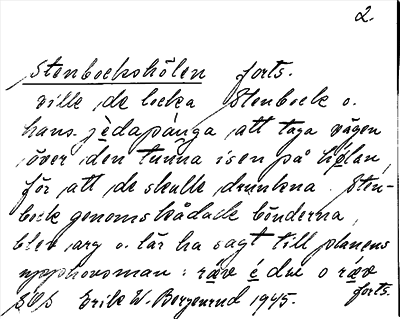 2.
Stenbockshölen forts.
ville de locka Stenbock o.
hans jèdapånga att taga vägen
över den tunna isen på hölan,
för att de skulle drunkna. Sten-
bock genomskådade bönderna,
blev arg o. lär ha sagt till planens
upphovsman: räv é du o räv
forts.
SOS Erik W. Bergenrud 1945.